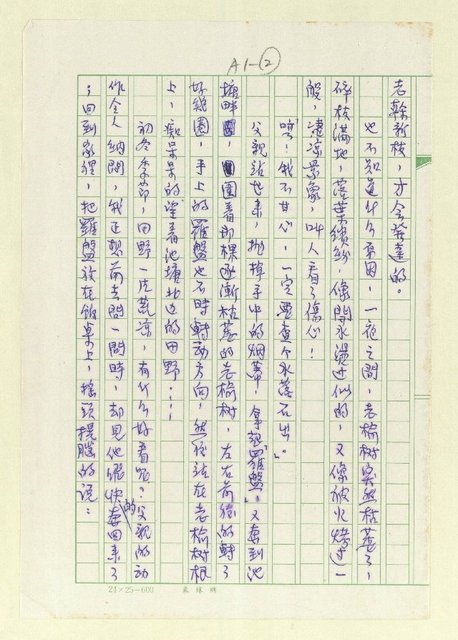 A1-②
老幹新枝，才会発達的。
也不知道什么原因，一夜之間，老榆樹突然枯萎了，
碎枝滿地，落葉繽紛，像開水燙过似的，又像被火烤过一
般，凄凉景象，叫人看了傷心！
「哼！我不甘心，一定要查个水落石出。」
父親站起來，拋掉手中的烟蒂，拿起「羅盤」，又奔到池
塘畔，圍着那棵逐漸枯萎的老榆樹，左右前後的轉了
好幾圈，手上的羅盤也不時轉动方向，然後站在老榆樹根
上，痴呆呆的望着池塘北边的田野……
初冬季節，田野一片荒凉，有什么好看呢？父親的动
作令人納悶，我正想前去問一問時，却見他很快的奔回來了
；回到家裡，把羅盤放在飯桌上，搖頭擺腦的說：
24×25=600